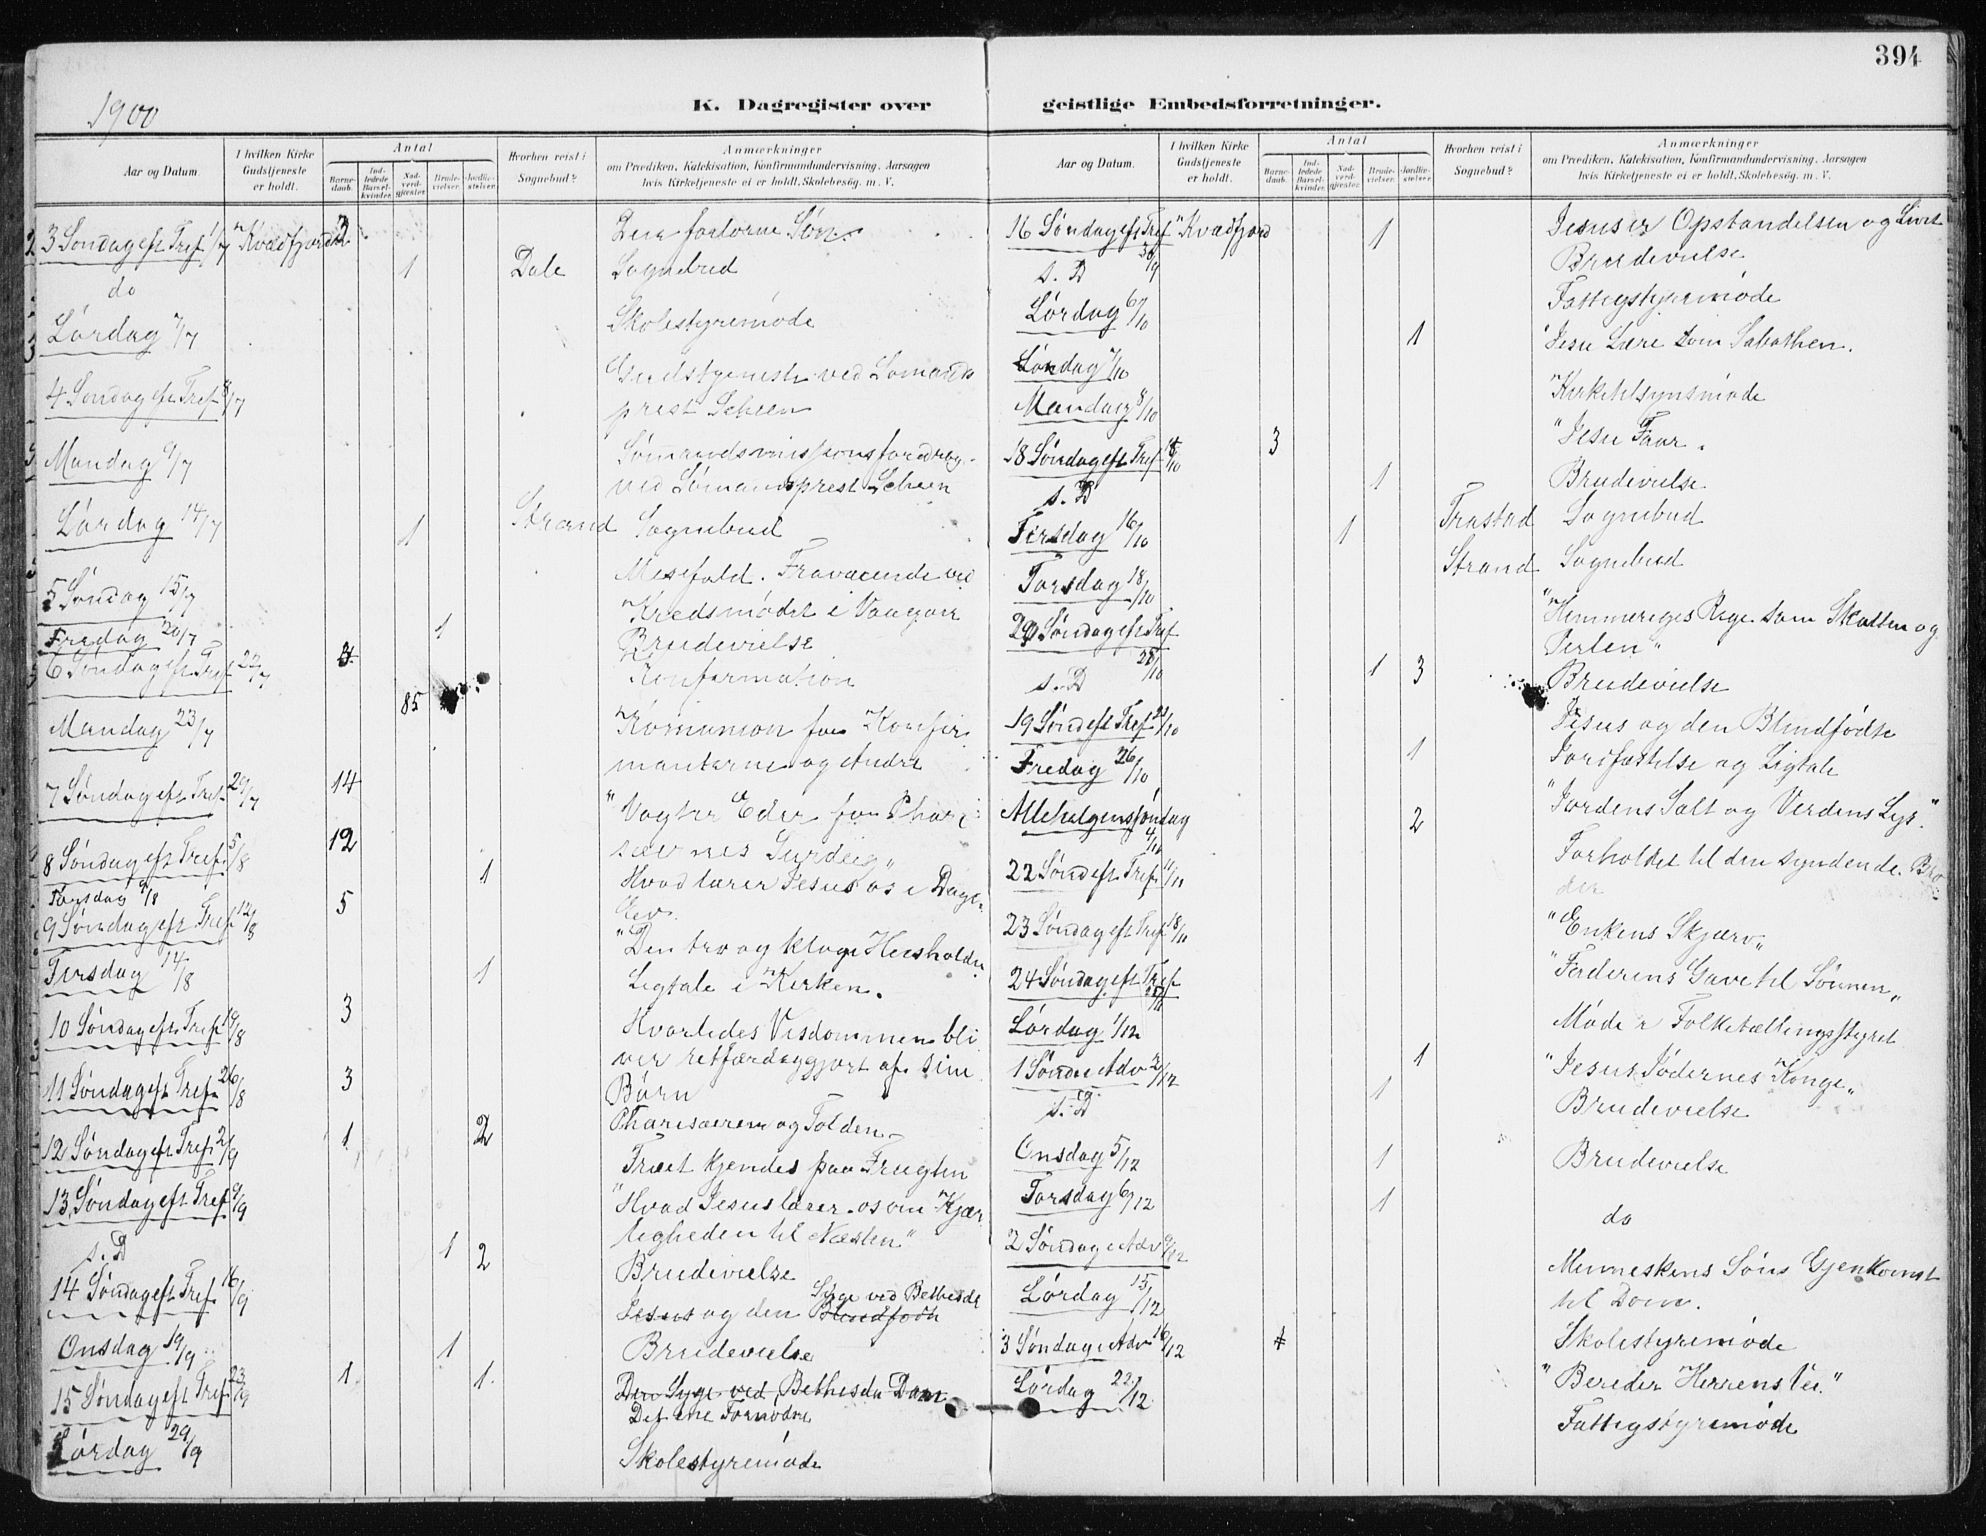 394
1900
K. Dagregister over
geistlige Embedsforretninger.
Aar og Datum
I hvilken Kirke Gudstjeneste er holdt.
Antal
Barnedaab.
Indledede Barselkvinder.
Nadverdgjester.
Brudevielser.
Jordfæstelser.
Hvorhen reist i Sognebud?
Anmærkninger
om Prædiken, Katekisation, Konfirmandundervisning. Aarsagen
hvis Kirketjeneste ei er holdt. Skolebesøg. m. V.
3 Søndag eft Tref 1/7 Kvædfjord 2 Den fortorne Søn.
do 1 Dale Sognebud
Lørdag 7/7 Skolestyremøde
4 Søndag eft Tref 8/7 Gudstjeneste ved Sømands
prest Scheen
Mandag 9/7 Sømandsmissionsforedrag
ved Sømandsprest Scheen
Lørdag 14/7 1 Strand Sognebud
5 Søndag 15/7 Mesefald. Fraværende ved
Kredsmødet i Vaagan
Fredag 20/7 1 Brudevielse
6 Søndag eft Tref 22/7 3 Konfirmation
Mandag 23/7 85 Komunion for Konfir
manterne og Andre
7 Søndag eft Tref 29/7 14 "Vogter Eder for Phari
sæernes Surdeig"
8 Søndag eft Tref 5/8 12 Hvad lærer Jesus os i Dags
Ev.
Torsdag 9/8 1
9 Søndag eft Tref 12/8 5 "Den tro og kloge Husholder
Tirsdag 14/8 1 Ligtale i Kirken.
10 Søndag eft Tref 19/8 3 Hvorledes Visdommen bli
ver retfærdiggjort af sine
Børn
11 Søndag eft Tref 26/8 3 Pharisæeren og Tolden
12 Søndag eft Tref 2/9 1 2 Træet kjendes paa Frugten
13 Søndag eft Tref 9/9 "Hvad Jesus lærer os om Kjær
ligheden til Næsten"
s. D 1 2 Brudevielse
14 Søndag eft Tref 16/9 Jesus og den Blindfødte Syge ved Bethesda
Onsdag 19/9 1 Brudevielse
15 Søndag eft Tref 23/9 1 1 Den Syge ved Bethesda Dam
Det ene Fornødne
Lørdag 29/9 Skolestyremøde
Aar og Datum.
I hvilken Kirke Gudstjeneste er holdt.
Antal
Barnedaab.
Indledede Barselkvinder.
Nadverdgjester.
Brudevielser.
Jordfæstelser.
Hvorhen reist i Sognebud?
Anmærkninger
om Prædiken, Katekisation, Konfirmandundervisning. Aarsagen
hvis Kirketjeneste ei er holdt. Skolebesøg. m. V.
16 Søndag eft Tref 30/9 Kvædfjord 1 Jesus er Opstandelsen og Livet
s. D Brudevielse
Lørdag 6/10 Fattigstyremøde
Søndag 7/10 1 Jesu Lære som Sabathen.
Mandag 8/10 Kirketilsynsmøde
18 Søndag eft Tref 3 "Jesu Faar.
s. D 1 Brudevielse
Tirsdag 16/10 1 Trastad Sognebud
Torsdag 18/10 Strand Sognebud
20 Søndag eft Tref 28/10 "Himmeriges Rige som Skatten og
Perlen"
s. D 1 3 Brudevielse
19 Sønd eft Tref 21/10 Jesus og den Blindfødte
Fredag 26/10 1 Jordfæstelse og Ligtale
Allehelgenssøndag 4/11 2 "Jordens Salt og Verdens Lys."
22 Sønd eft Tref 11/11 Forholdet til den syndende Bro
der
23 Søndag eft Tref 18/11 "Enkens Skjærv"
24 Søndag eft Tref 25/11 "Faderens Gave til Sønnen"
Lørdag 1/12 Møde i Folketællingsstyret
1 Sønd i Adv 2/12 1 "Jesus Jødernes Konge"
s. D 1 Brudevielse
Onsdag 5/12 1 Brudevielse
Torsdag 6/12 1 do
2 Søndag i Adv 9/12 Menneskens Søns Gjenkomst
til Dom.
Lørdag 15/12 Skolestyremøde
3 Søndag i Adv 16/12 1 "Bereder Herrens Vei."
Lørdag 22/12 Fattigstyremøde